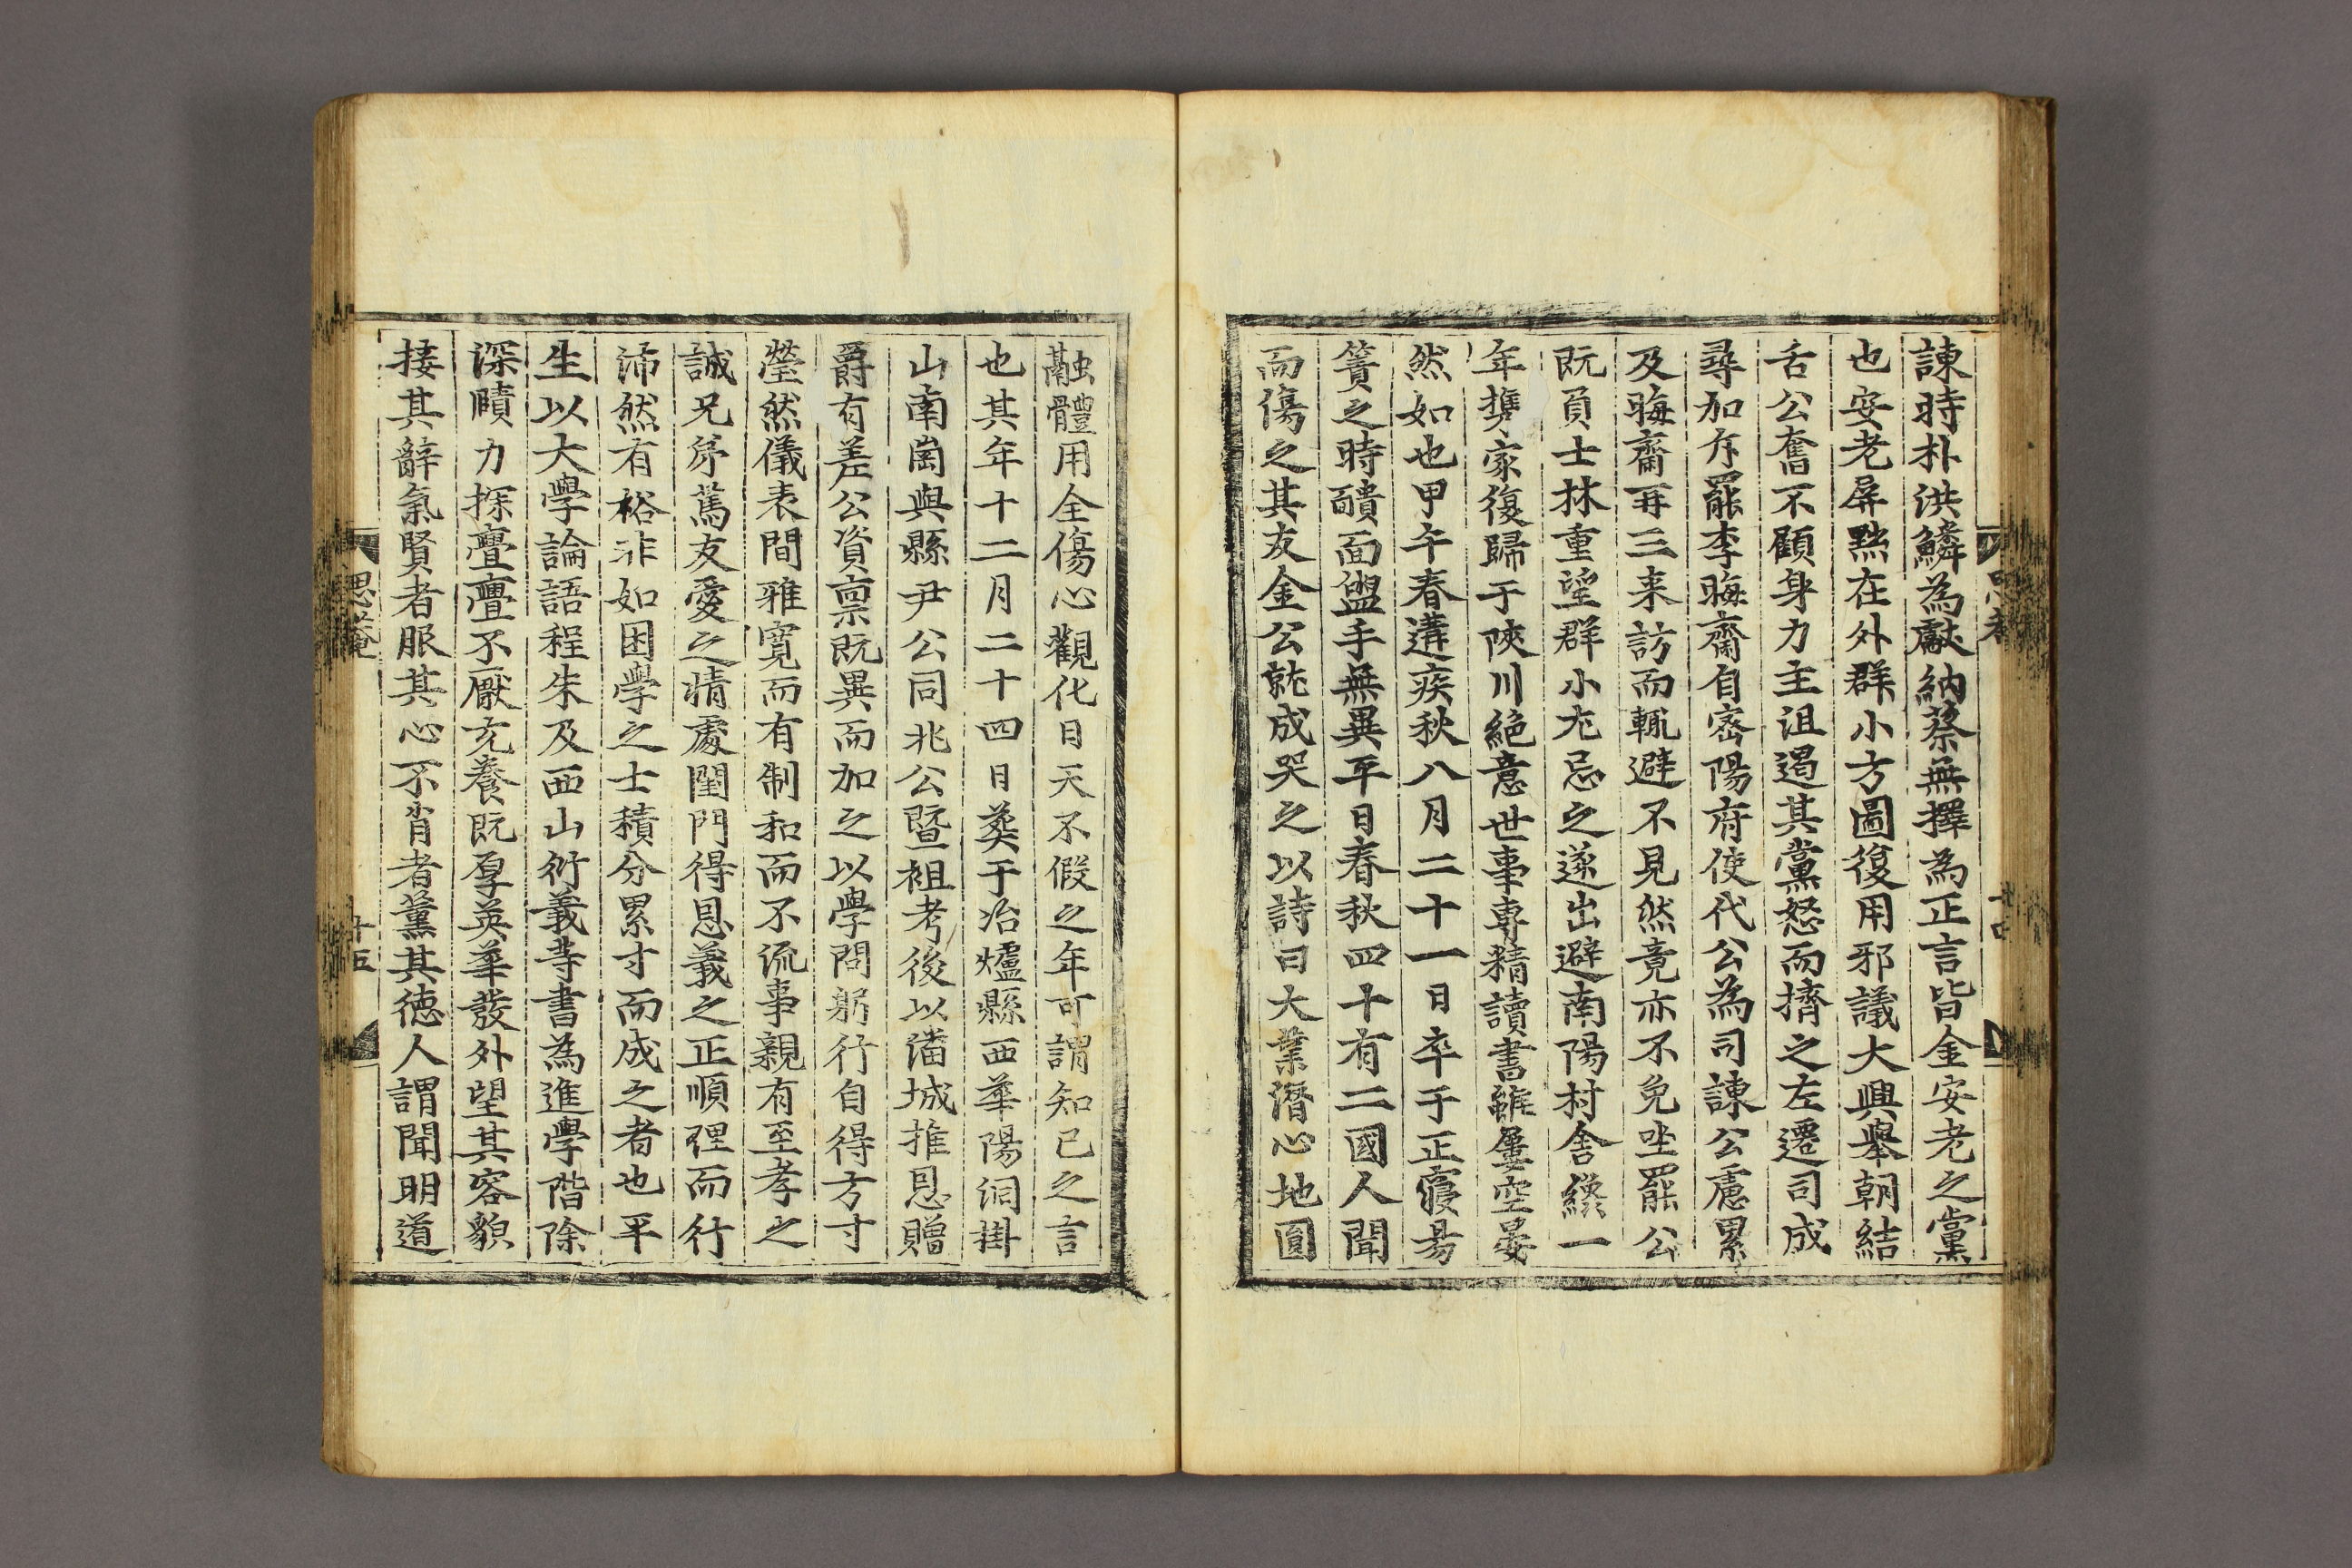 諫時朴洪鱗為獻納蔡無擇為正言皆金安老之黨
也安老屏黜在外群小方圖復用邪議大興舉朝結
舌公奮不顧身力主沮遏其黨怒而擠之左遷司成
尋加斥罷李晦齋自密陽府使代公為司諫公慮累
及晦齋再三来訪而輒避不見然竟亦不免坐罷公
既負士林重望群小尤忌之遂出避南陽村舍纔一
年携家復歸于陜川絶意世事専精讀書雖屢空晏
然如也甲午春遘疾秋八月二十一日卒于正寢昜
簀之時靧面盥手無異平日春秋四十有二國人聞
而傷之其友金公就成哭之以詩曰大業潛心地圓
融體用全傷心觀化日天不假之年可謂知已之言
也其年十二月二十四日葬于冶爐縣西華陽洞掛
山南崗與縣尹公同兆公曁祖考後以潘城推恩贈
爵有差公資禀既異而加之以學問躬行自得方寸
瑩然儀表間雅寬而有制和而不流事親有至孝之
誠兄弟篤友愛之情處閨門得恩義之正順理而行
沛然有裕非如困學之士積分累寸而成之者也平
生以大學論語程朱及西山衍義等書為進學階除
深賾力探亹亹不厭充養既厚英華發外望其容貌
接其辭氣賢者服其心不肖者薰其徳人謂聞明道
思菴
十五